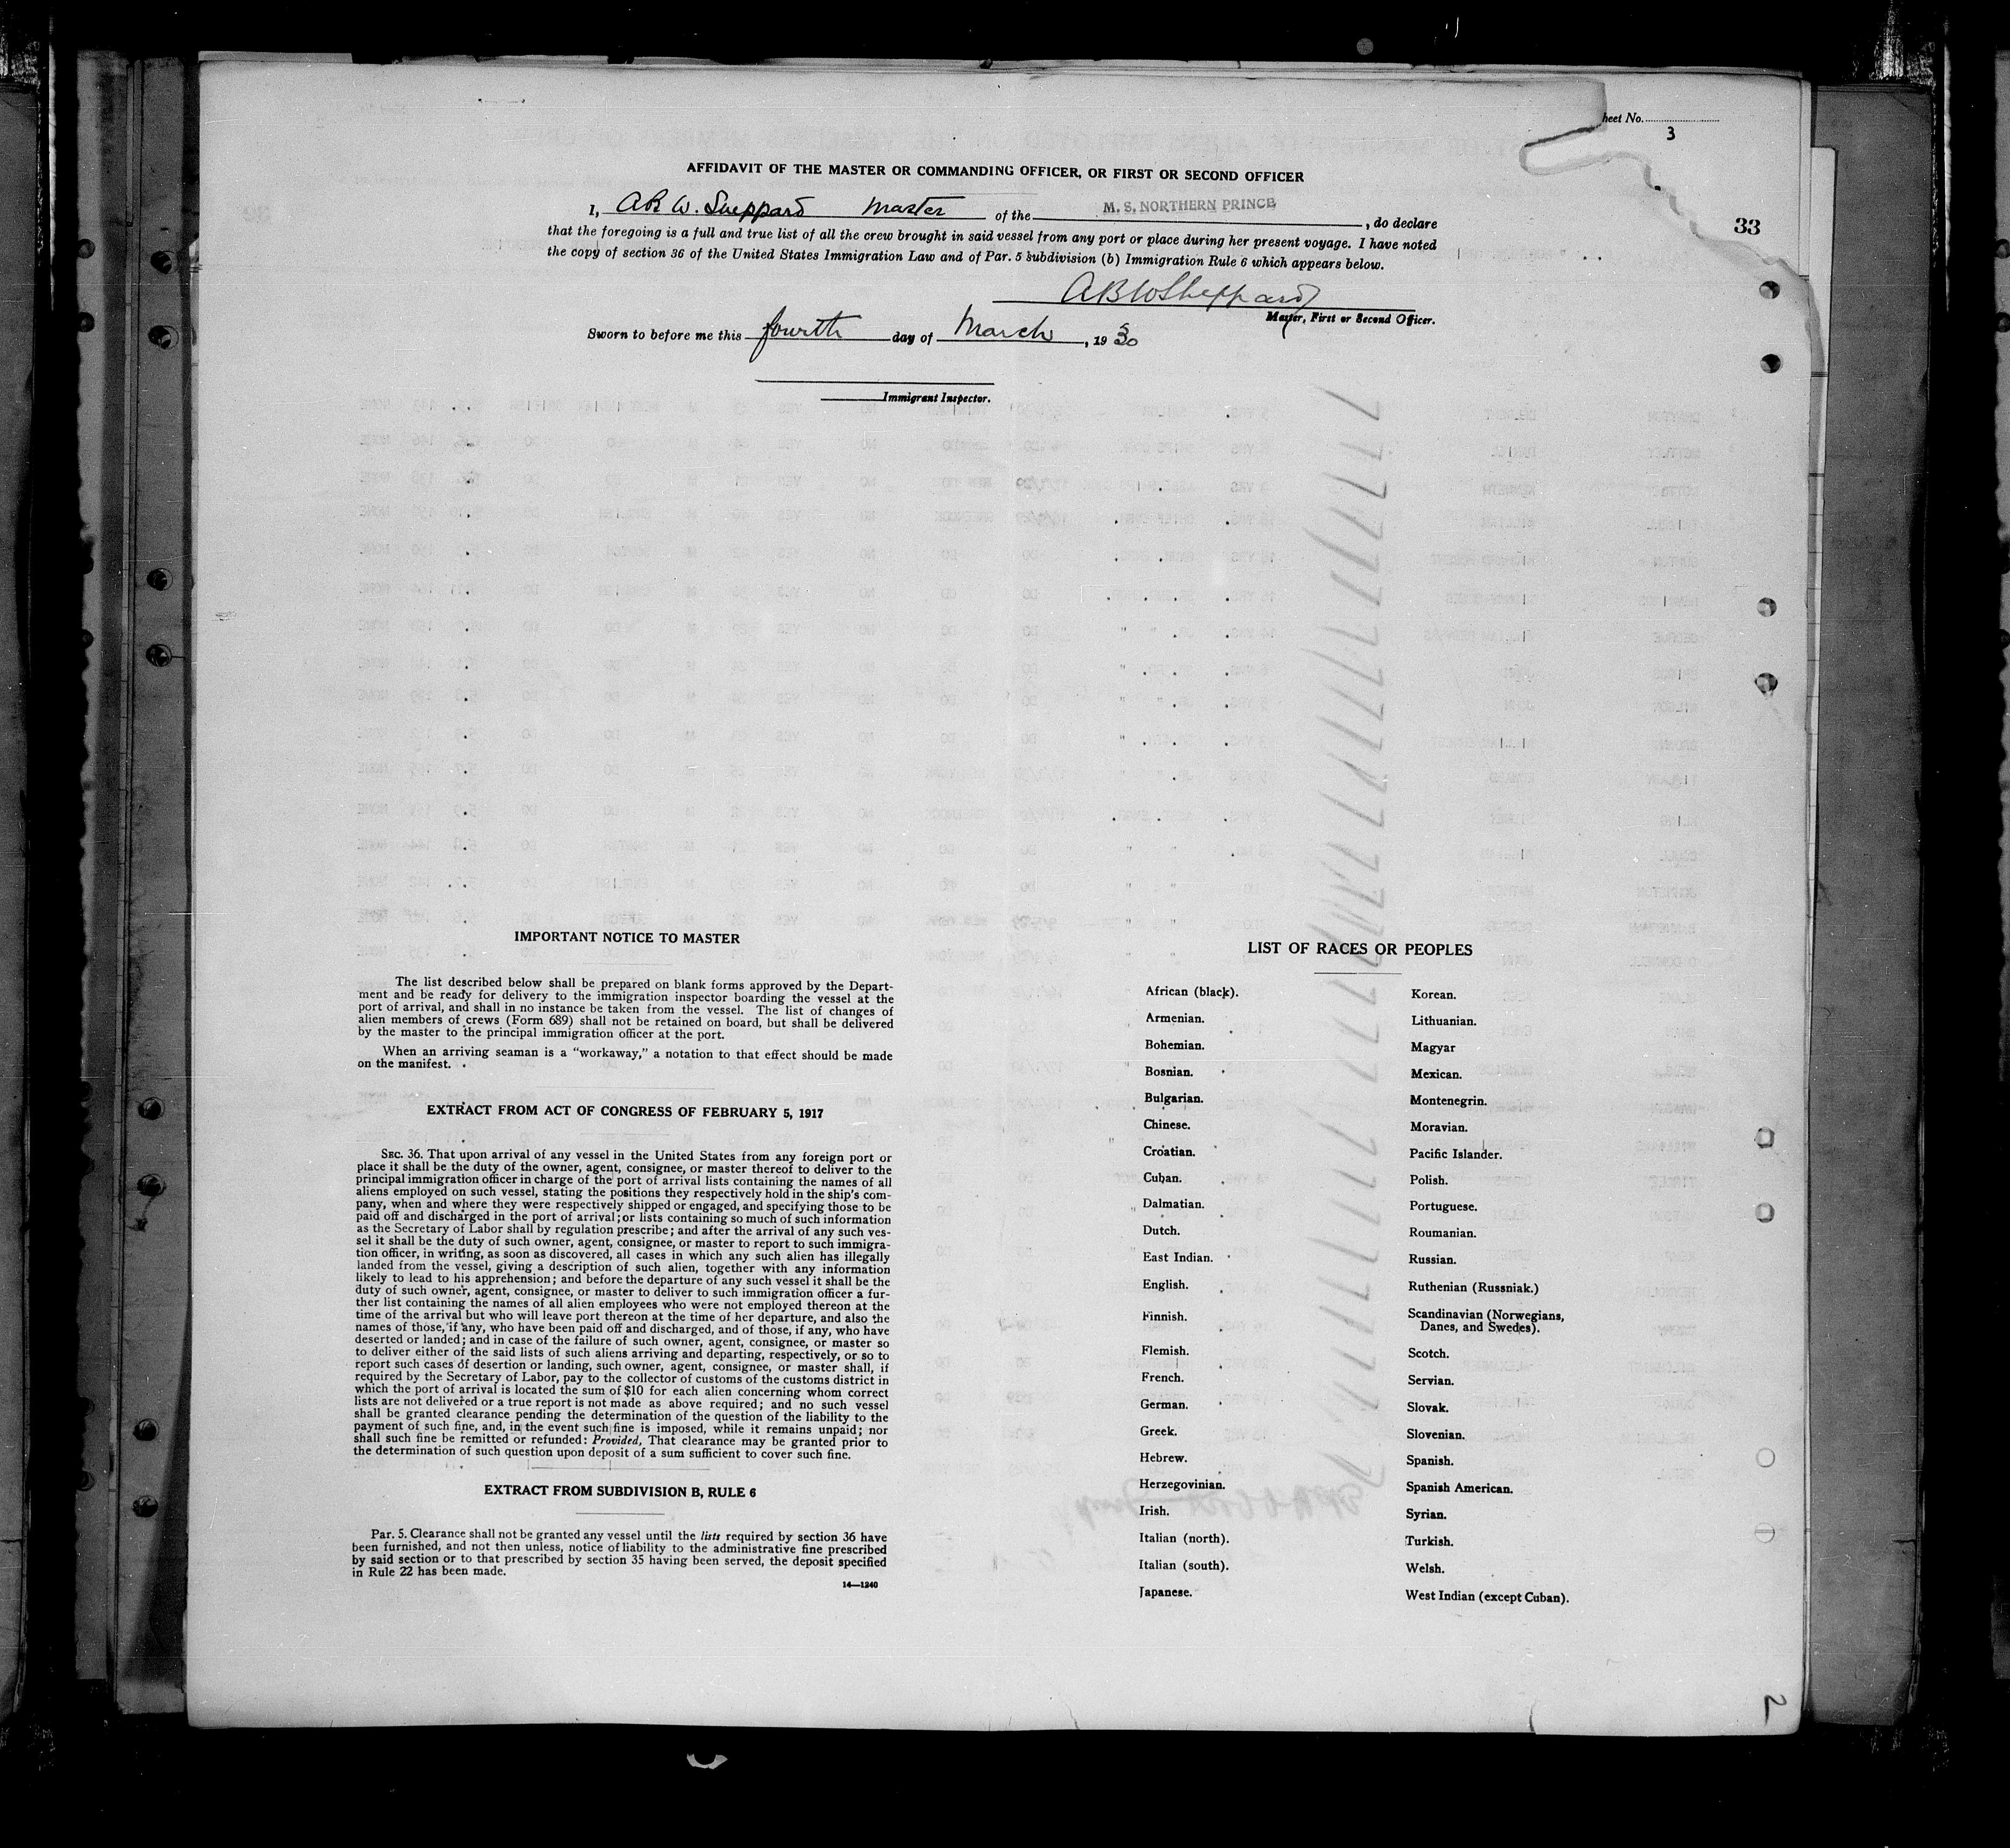 heet No.
3
AFFIDAVIT OF THE MASTER OR COMMANDING OFFICER, OR FIRST OR SECOND OFFICER
33
I, A B W. Sheppard Master of the M. S. NORTHERN PRINCE, do declare
that the foregoing is a full and true list of all the crew brought in said vessel from any port or place during her present voyage. I have noted
the copy of section 36 of the United States Immigration Law and of Par. 5 subdivision (b) Immigration Rule 6 which appears below.
A B W Sheppard
Master, First or Second Officer.
Sworn to before me this fourth day of March, 19 30
Immigrant Inspector.
IMPORTANT NOTICE TO MASTER
The list described below shall be prepared on blank forms approved by the Depart-
ment and be ready for delivery to the immigration inspector boarding the vessel at the
port of arrival, and shall in no instance be taken from the vessel. The list of changes of
alien members of crews (Form 689) shall not be retained on board, but shall be delivered
by the master to the principal immigration officer at the port.
When an arriving seaman is a “workaway,” a notation to that effect should be made
on the manifest.
EXTRACT FROM ACT OF CONGRESS OF FEBRUARY 5, 1917
SEC. 36. That upon arrival of any vessel in the United States from any foreign port or
place it shall be the duty of the owner, agent, consignee, or master thereof to deliver to the
principal immigration officer in charge of the port of arrival lists containing the names of all
aliens employed on such vessel, stating the positions they respectively hold in the ship's com-
pany, when and where they were respectively shipped or engaged, and specifying those to be
paid off and discharged in the port of arrival; or lists containing so much of such information
as the Secretary of Labor shall by regulation prescribe; and after the arrival of any such ves-
sel it shall be the duty of such owner, agent, consignee, or master to report to such immigra-
tion officer, in writing, as soon as discovered, all cases in which any such alien has illegally
landed from the vessel, giving a description of such alien, together with any information
likely to lead to his apprehension; and before the departure of any such vessel it shall be the
duty of such owner, agent, consignee, or master to deliver to such immigration officer a fur-
ther list containing the names of all alien employees who were not employed thereon at the
time of the arrival but who will leave port thereon at the time of her departure, and also the
names of those, if any, who have been paid off and discharged, and of those, if any, who have
deserted or landed; and in case of the failure of such owner, agent, consignee, or master so
to deliver either of the said lists of such aliens arriving and departing, respectively, or so to
report such cases of desertion or landing, such owner, agent, consignee, or master shall, if
required by the Secretary of Labor, pay to the collector of customs of the customs district in
which the port of arrival is located the sum of $10 for each alien concerning whom correct
lists are not delivered or a true report is not made as above required; and no such vessel
shall be granted clearance pending the determination of the question of the liability to the
payment of such fine, and, in the event such fine is imposed, while it remains unpaid; nor
shall such fine be remitted or refunded: Provided, That clearance may be granted prior to
the determination of such question upon deposit of a sum sufficient to cover such fine.
EXTRACT FROM SUBDIVISION B, RULE 6
Par. 5. Clearance shall not be granted any vessel until the lists required by section 36 have
been furnished, and not then unless, notice of liability to the administrative fine prescribed
by said section or to that prescribed by section 35 having been served, the deposit specified
in Rule 22 has been made.
14—1240
LIST OF RACES OR PEOPLES
African (black).
Armenian.
Bohemian.
Bosnian.
Bulgarian.
Chinese.
Croatian.
Cuban.
Dalmatian.
Dutch.
East Indian.
English.
Finnish.
Flemish.
French.
German.
Greek.
Hebrew.
Herzegovinian.
Irish.
Italian (north).
Italian (south).
Japanese.
Korean.
Lithuanian.
Magyar
Mexican.
Montenegrin.
Moravian.
Pacific Islander.
Polish.
Portuguese.
Roumanian.
Russian.
Ruthenian (Russniak.)
Scandinavian (Norwegians,
Danes, and Swedes).
Scotch.
Servian.
Slovak.
Slovenian.
Spanish.
Spanish American.
Syrian.
Turkish.
Welsh.
West Indian (except Cuban).
2